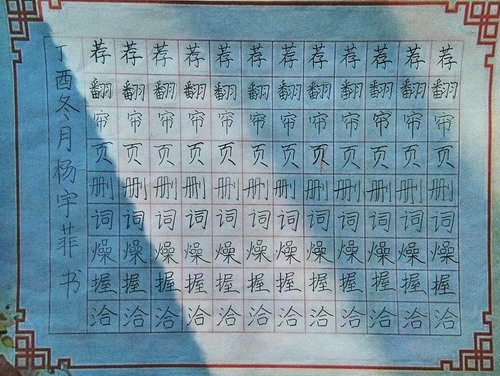 丁酉冬月杨宇菲书
荐荐荐荐荐荐荐荐荐荐荐荐
翻翻翻翻翻翻翻翻翻翻翻翻
帘帘帘帘帘帘帘帘帘帘帘帘
页页页页页页页页页页页页
删删删删删删删删删删删删
词词词词词词词词词词词词
燥燥燥燥燥燥燥燥燥燥燥燥
握握握握握握握握握握握握
洽洽洽洽洽洽洽洽洽洽洽洽